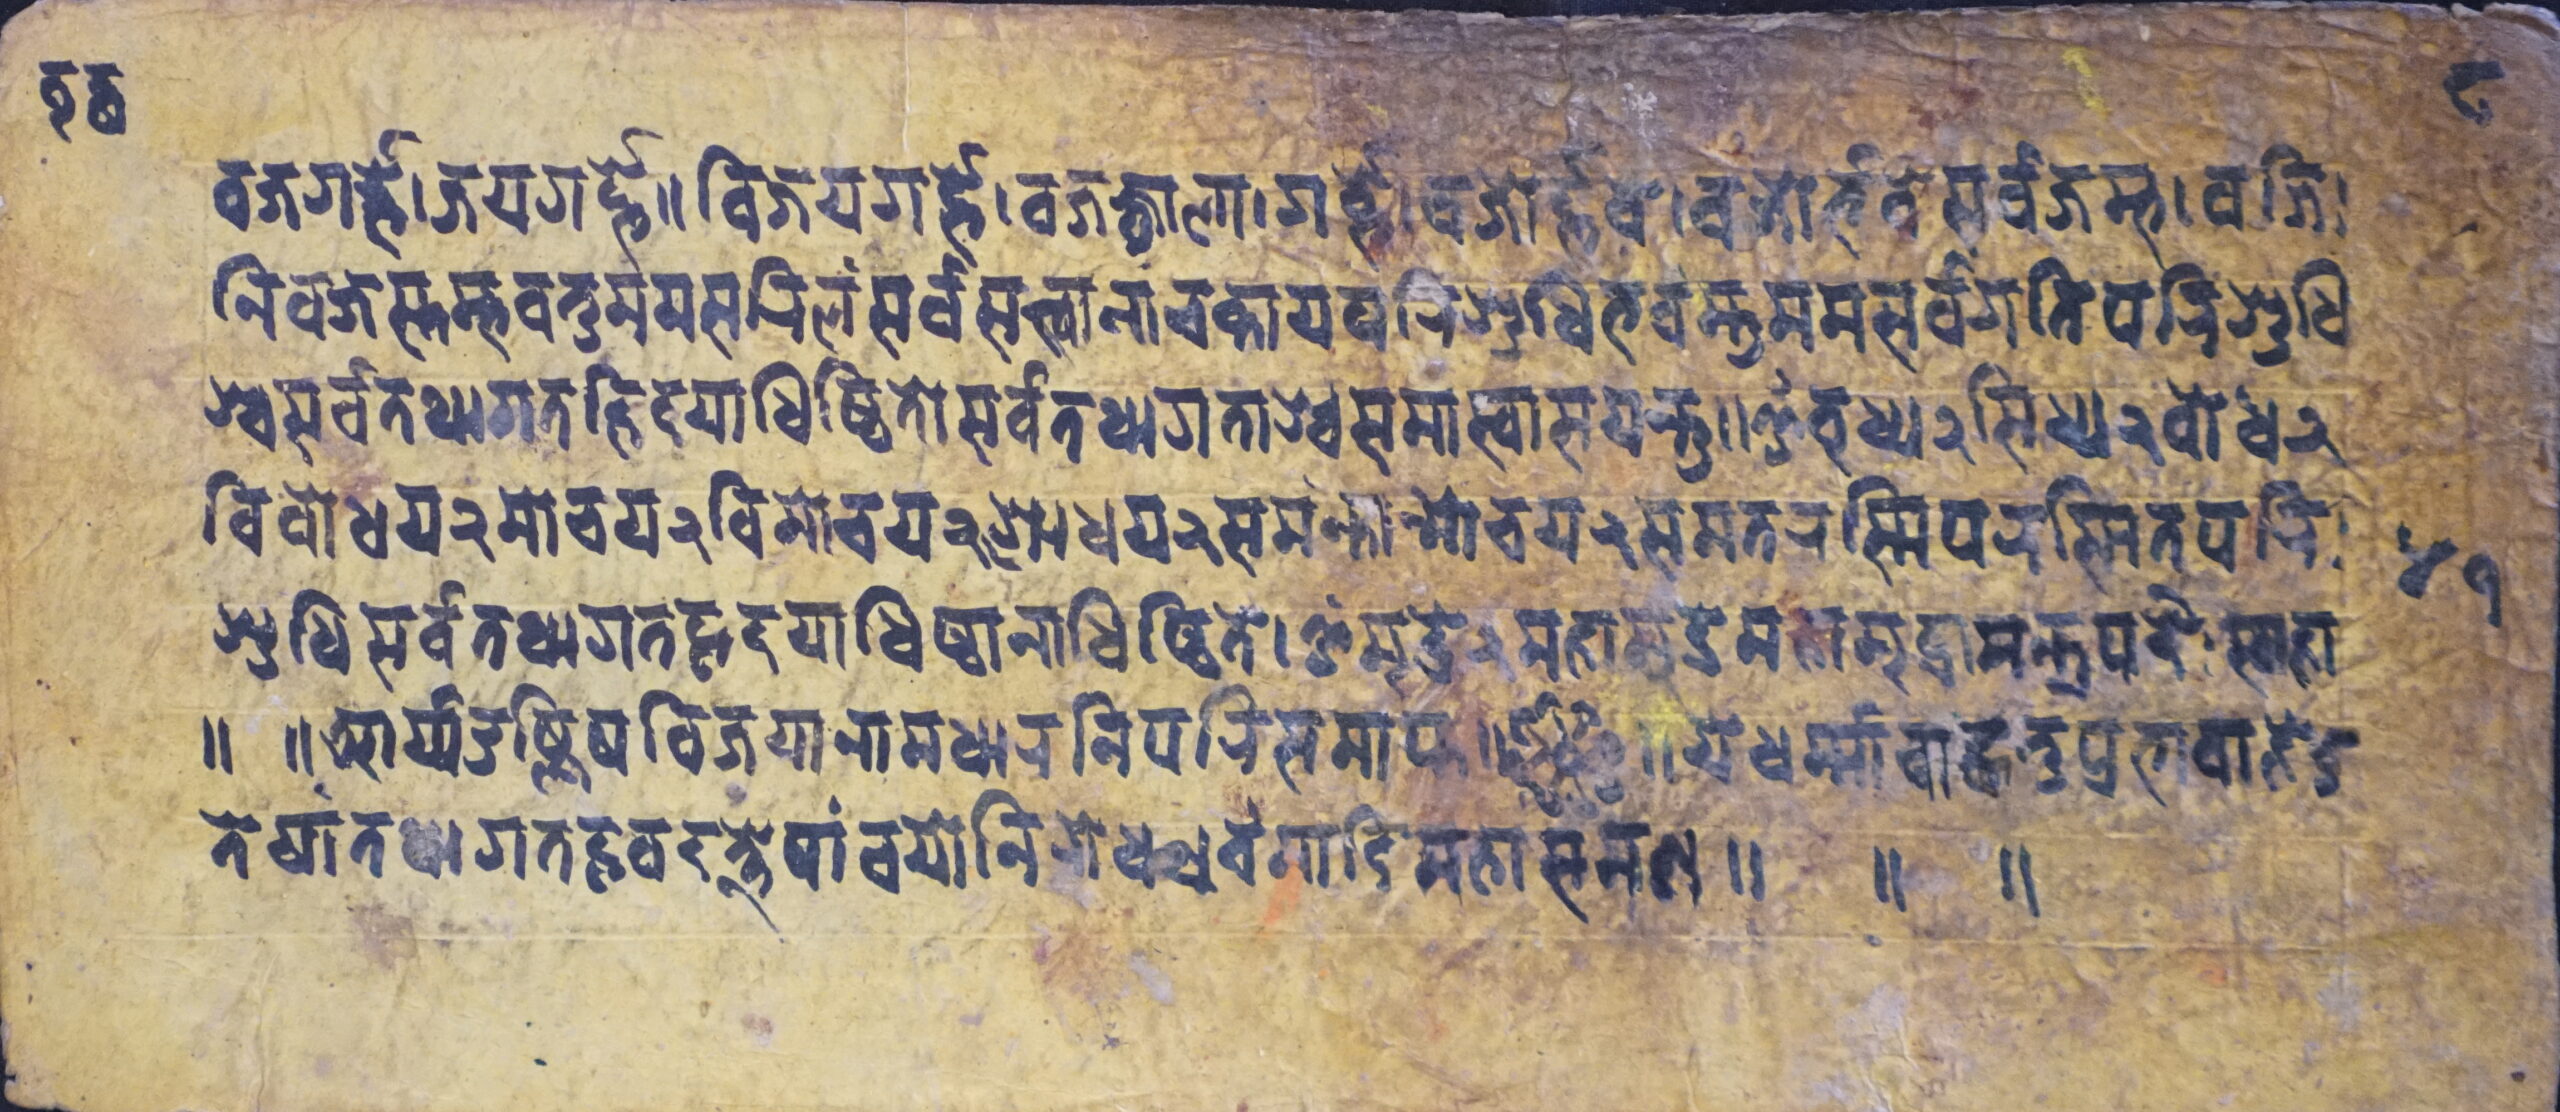 वजगर्ह्भे।जयगर्ह्भे॥विजयगर्ह्भे।वजज्वाला।गर्ह्भे।वजोर्ह्भवे।वजोर्भवे सर्वजम्भ।वजि।
निवजस्तम्भवतुममसरिलंसर्वसत्त्वानांचकायपरिशुधिभवन्तुममसर्वगतिपरिशुधि
श्चसर्वतथागतह्रिदयाधिष्ठितोसर्वतथागताश्चसमास्वासयन्तु॥ॐबुध्य२सिध्य२बोध२
विबोधय२मोचय२विमोचय२शोधय२समन्तान्मोचय२समतरस्मिपरस्मितपरि।
शुधिसर्वतथागतहृदयाधिष्ठानाधिष्ठिते।ॐमुद्रे२महामुद्रेमहामुद्रामन्त्रपदैःस्वाहा
॥ ॥आर्य्याउष्णिषविजयानामधारनिपरिसमाप्त॥ ॥येधर्म्मावाहेतुप्रभावाहेतु
तेषांतथागतह्भवदत्तेषांचयोनिरोधएवंमादिमहासमण॥ ॥ ॥
४१